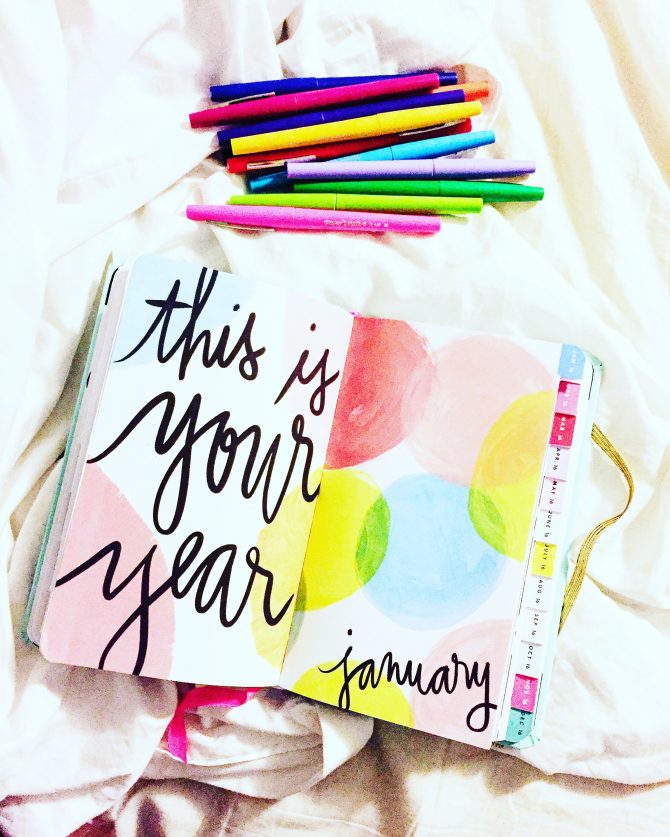 this is
your
year
january
JAN 16
MAR 16
APR 16
MAY 16
JUNE 16
JULY 16
AUG 16
SEP 16
OCT 16
NOV 16
DEC 16